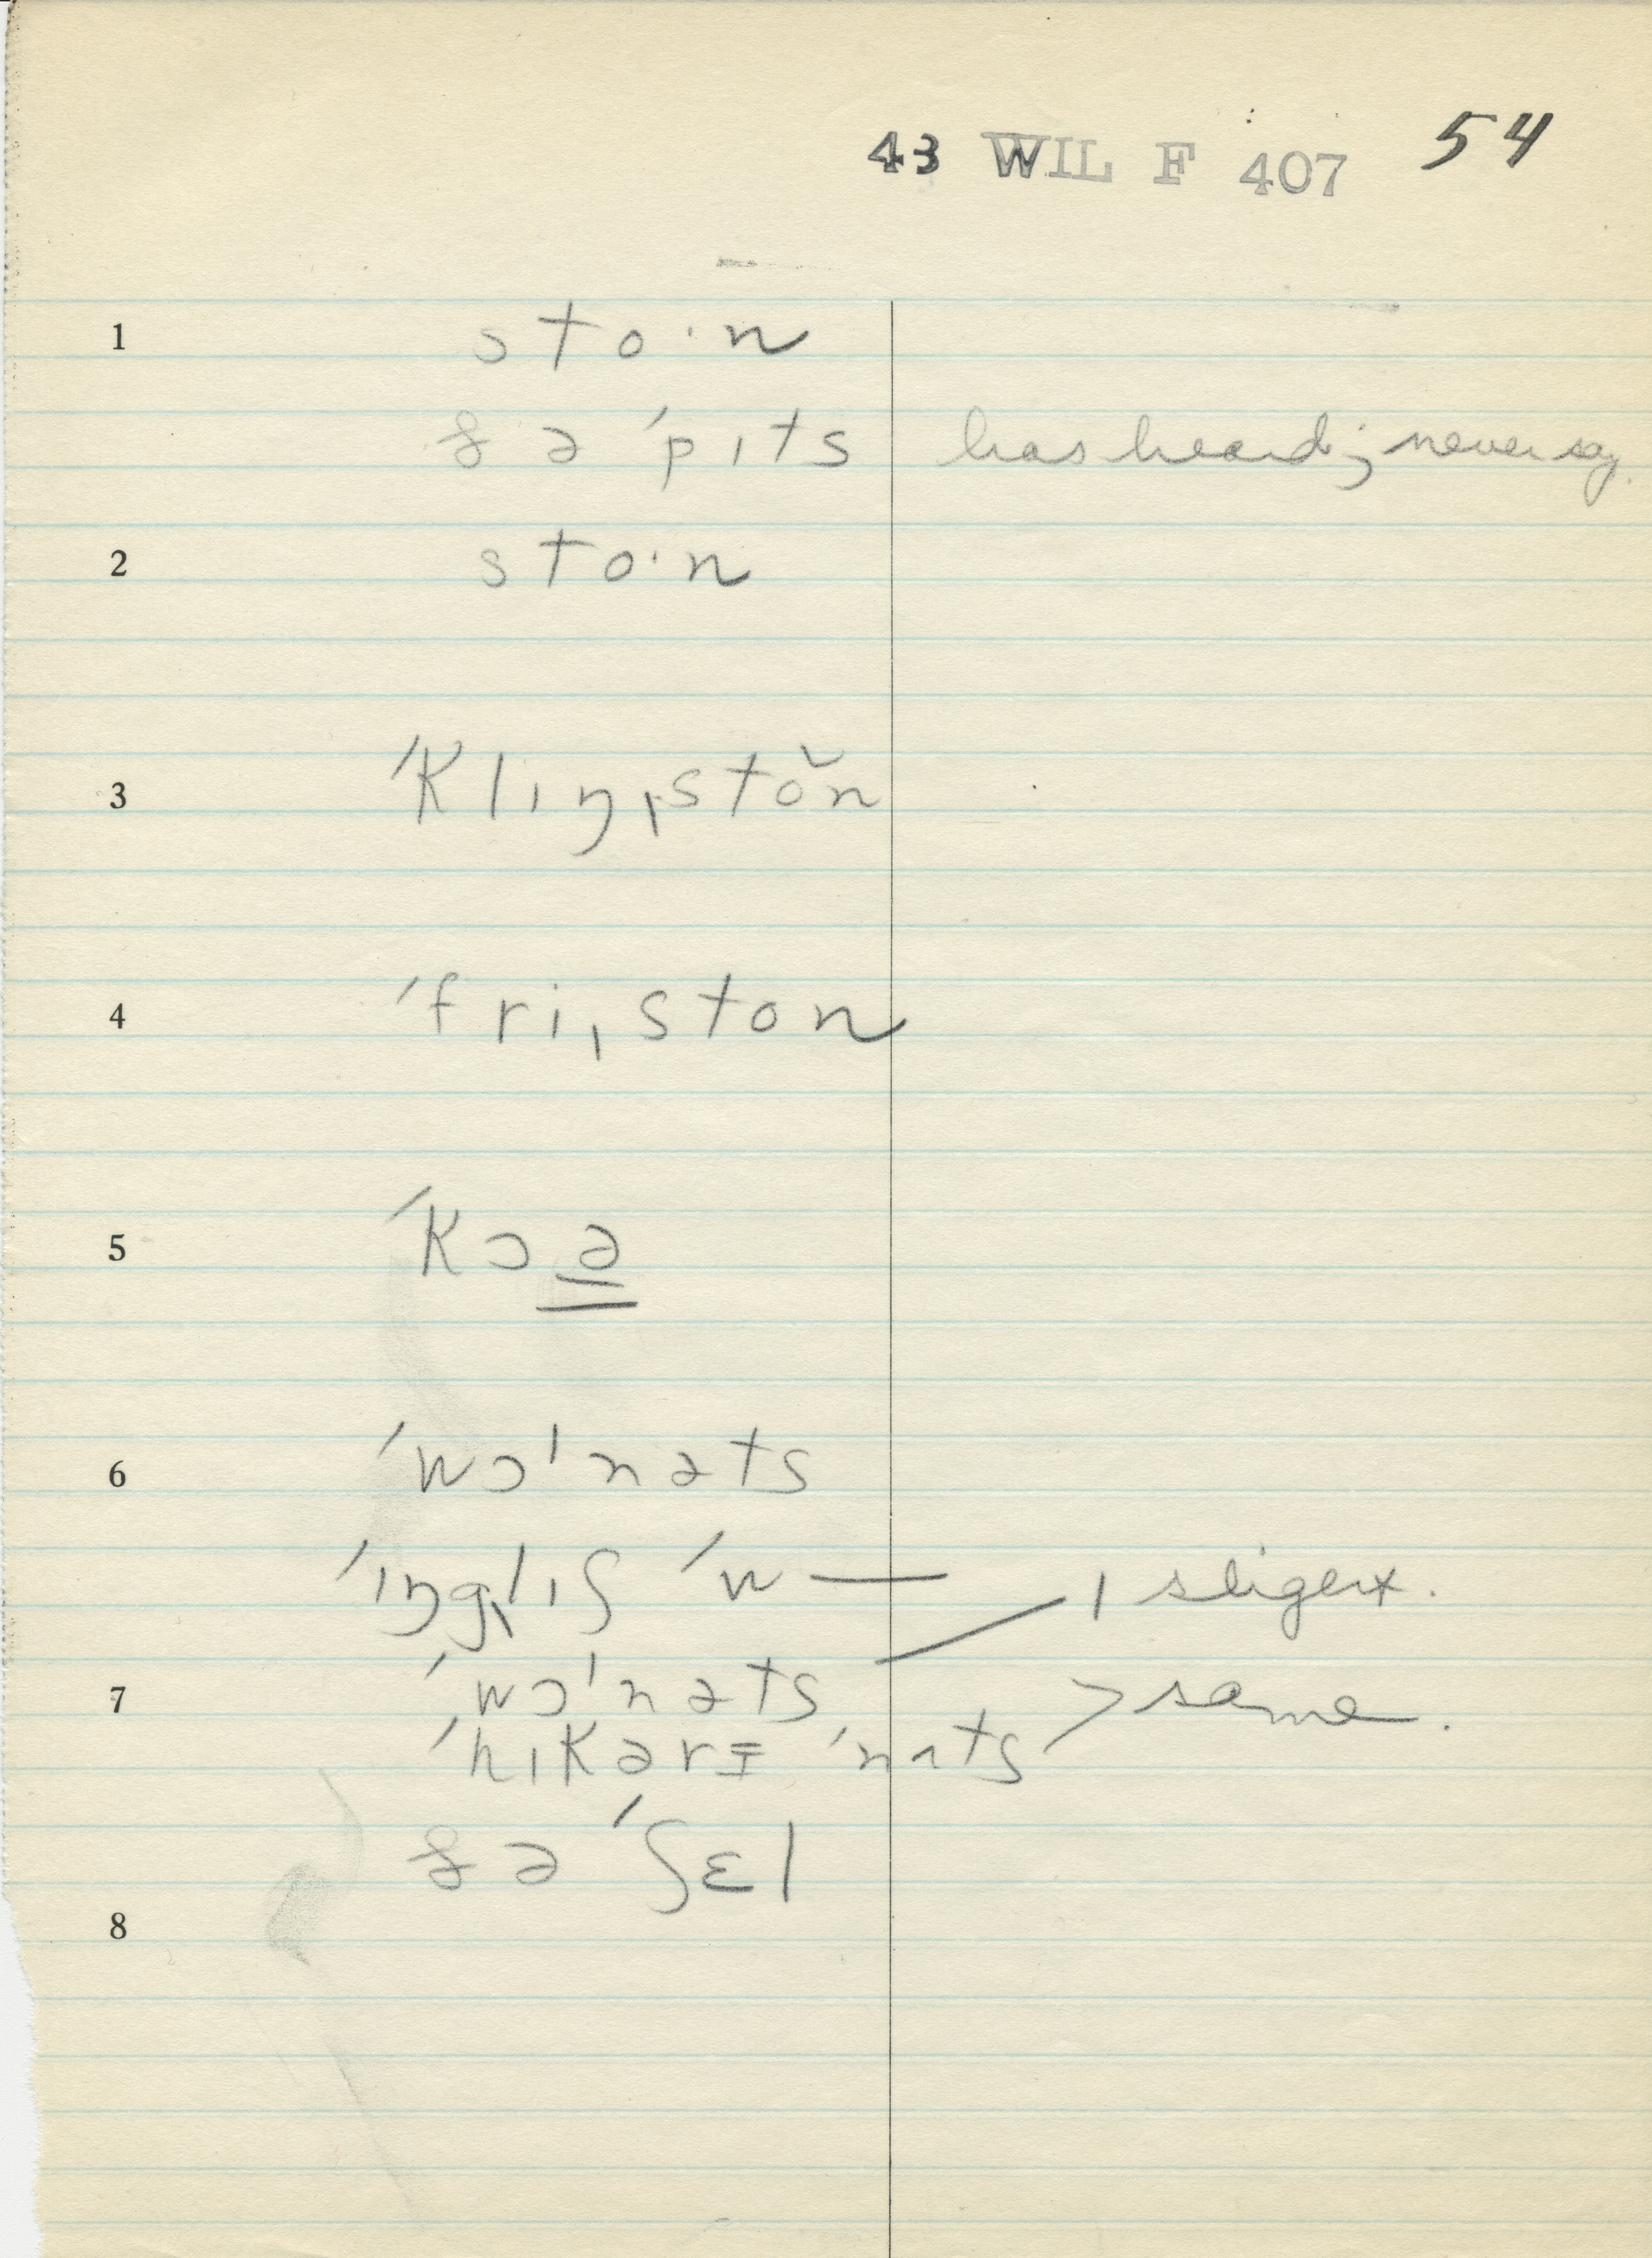 43 WIL F 407 54
1 sto·n
& ə ˈpɪts has heard; never say.
2 sto·n
3 ˈklɪŋˌstŏn
4 ˈfriˌston
5 ˈkɔə
6 ˈwɔˈnəts
ˈɪŋglˌɪʃ ˈw—
7 ˈwɔˈnəts
ˈhɪkərɪ ˈnʌts > same.
& ə ˈʃɛl
8